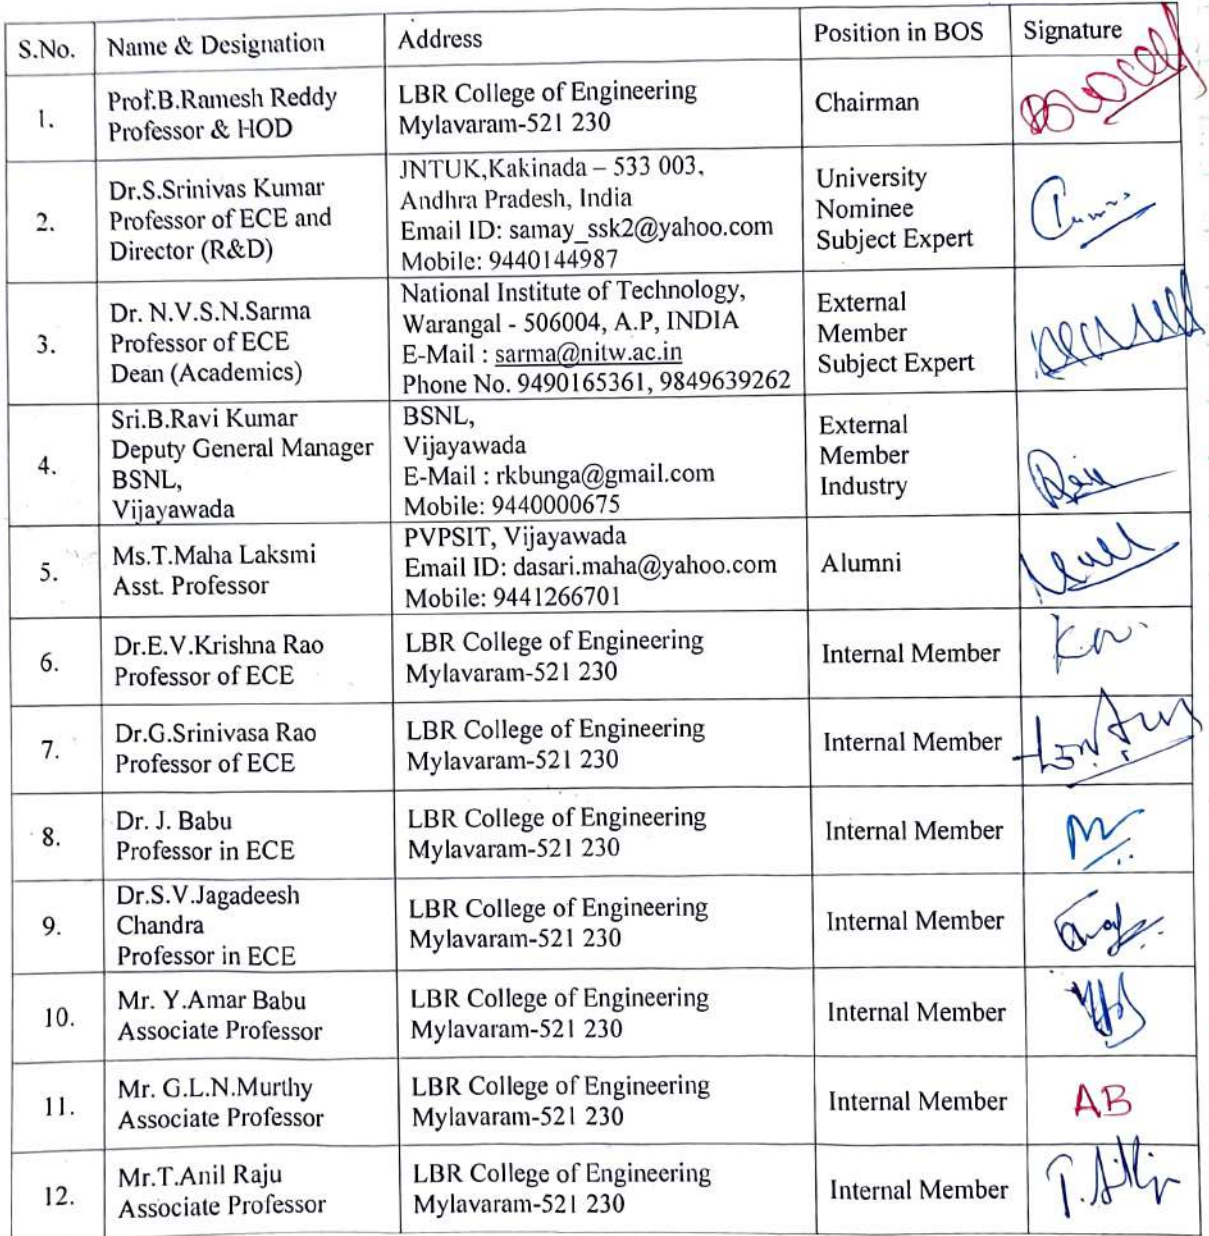 S.No. Name & Designation Address Position in BOS Signature
1. Prof.B.Ramesh Reddy
Professor & HOD
LBR College of Engineering
Mylavaram-521 230
Chairman
2. Dr.S.Srinivas Kumar
Professor of ECE and
Director (R&D)
JNTUK,Kakinada – 533 003,
Andhra Pradesh, India
Email ID: samay_ssk2@yahoo.com
Mobile: 9440144987
University
Nominee
Subject Expert
3. Dr. N.V.S.N.Sarma
Professor of ECE
Dean (Academics)
National Institute of Technology,
Warangal - 506004, A.P, INDIA
E-Mail : sarma@nitw.ac.in
Phone No. 9490165361, 9849639262
External
Member
Subject Expert
4. Sri.B.Ravi Kumar
Deputy General Manager
BSNL,
Vijayawada
BSNL,
Vijayawada
E-Mail : rkbunga@gmail.com
Mobile: 9440000675
External
Member
Industry
5. Ms.T.Maha Laksmi
Asst. Professor
PVPSIT, Vijayawada
Email ID: dasari.maha@yahoo.com
Mobile: 9441266701
Alumni
6. Dr.E.V.Krishna Rao
Professor of ECE
LBR College of Engineering
Mylavaram-521 230
Internal Member
7. Dr.G.Srinivasa Rao
Professor of ECE
LBR College of Engineering
Mylavaram-521 230
Internal Member
8. Dr. J. Babu
Professor in ECE
LBR College of Engineering
Mylavaram-521 230
Internal Member
9. Dr.S.V.Jagadeesh
Chandra
Professor in ECE
LBR College of Engineering
Mylavaram-521 230
Internal Member
10. Mr. Y.Amar Babu
Associate Professor
LBR College of Engineering
Mylavaram-521 230
Internal Member
11. Mr. G.L.N.Murthy
Associate Professor
LBR College of Engineering
Mylavaram-521 230
Internal Member
AB
12. Mr.T.Anil Raju
Associate Professor
LBR College of Engineering
Mylavaram-521 230
Internal Member